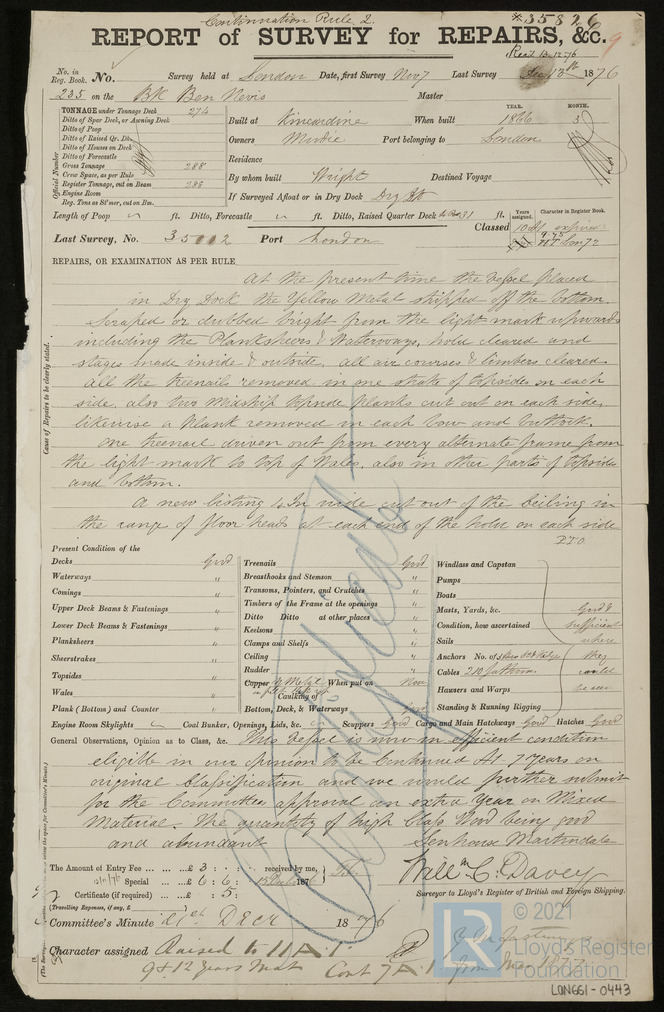 Continuation Rule 2.
*35826
REPORT of SURVEY for REPAIRS, &c. 9
Recd 13.12.76
No. in Reg. Book. No. Survey held at London Date, first Survey Nov 7 Last Survey Dec 13th 1876
235 on the Bk Ben Nevis Master
TONNAGE under Tonnage Deck 274
Ditto of Spar Deck, or Awning Deck
Ditto of Poop
Ditto of Raised Qr. Dk.
Ditto of Houses on Deck
Ditto of Forecastle
Gross Tonnage 288
Crew Space, as per Rule
Register Tonnage, cut on Beam 288
Engine Room
Reg. Tons as St'mer, cut on Bm.
Official Number
Built at Kincardine When built YEAR. 1866 MONTH. 3
Owners Mudie Port belonging to London
Residence
By whom built Wright Destined Voyage
If Surveyed Afloat or in Dry Dock Dry Dk
Length of Poop ft. Ditto, Forecastle ft. Ditto, Raised Quarter Deck 31 ft.
Classed Years assigned. Character in Register Book.
10 A1 expired
9.75
Lon 72
Last Survey, No. 35112 Port London
REPAIRS, OR EXAMINATION AS PER RULE
Cause of Repairs to be clearly stated.
At the present time the Vessel placed
in Dry Dock the Yellow Metal stripped off the bottom.
Scraped or dubbed bright from the light mark upwards
including the Planksheers & Waterways, hold cleared and
stages made inside & outside. all air courses & limbers cleared
all the treenails removed in one strake of topsides on each
side. also two Midship topside planks cut out on each side,
likewise a plank removed in each bow and buttock.
One treenail driven out from every alternate frame from
the light mark to top of Wales, also in other parts of topsides
and bottom.
A new listing 4 In wide cut out of the ceiling in
the range of floor heads at each end of the hold on each side
P.T.O
Present Condition of the
Decks Good
Waterways "
Comings "
Upper Deck Beams & Fastenings "
Lower Deck Beams & Fastenings "
Planksheers "
Sheerstrakes "
Topsides "
Wales "
Plank (Bottom) and Counter "
Treenails Good
Breasthooks and Stemson "
Transoms, Pointers, and Crutches "
Timbers of the Frame at the openings "
Ditto Ditto at other places "
Keelsons "
Clamps and Shelfs "
Ceiling "
Rudder "
Copper Y Metal When put on Now
Caulking of
Bottom, Deck, & Waterways
Windlass and Capstan
Pumps
Boats
Masts, Yards, &c. Good &
Condition, how ascertained sufficient
Sails where
Anchors No. of they
Cables 210 fathoms could
Hawsers and Warps be seen
Standing & Running Rigging
Engine Room Skylights Coal Bunker, Openings, Lids, &c. Scuppers Good Cargo and Main Hatchways Good Hatches Good
General Observations, Opinion as to Class, &c. This Vessel is now in efficient condition
eligible in our opinion to be Continued A1 7 years on
original Classification and we would further submit
for the Committees approval an extra Year on Mixed
Material. The quantity of high Class Wood being good
and abundant
Senhouse Martindale
Will m C. P. Davey
Surveyor to Lloyd's Register of British and Foreign Shipping.
The Amount of Entry Fee £ 3 : : received by me,
Special £ 6 : 6 : 187
Certificate (if required) £ : 5 :
(Travelling Expenses, if any, £ )
Committee's Minute 21st Decr 1876
Character assigned Raised to 11 A.1.
9 + 1 2 Years Mat Cont 7 A.1
from 1877
© 2021
Lloyd's Register
Foundation
LR
LON661-0443